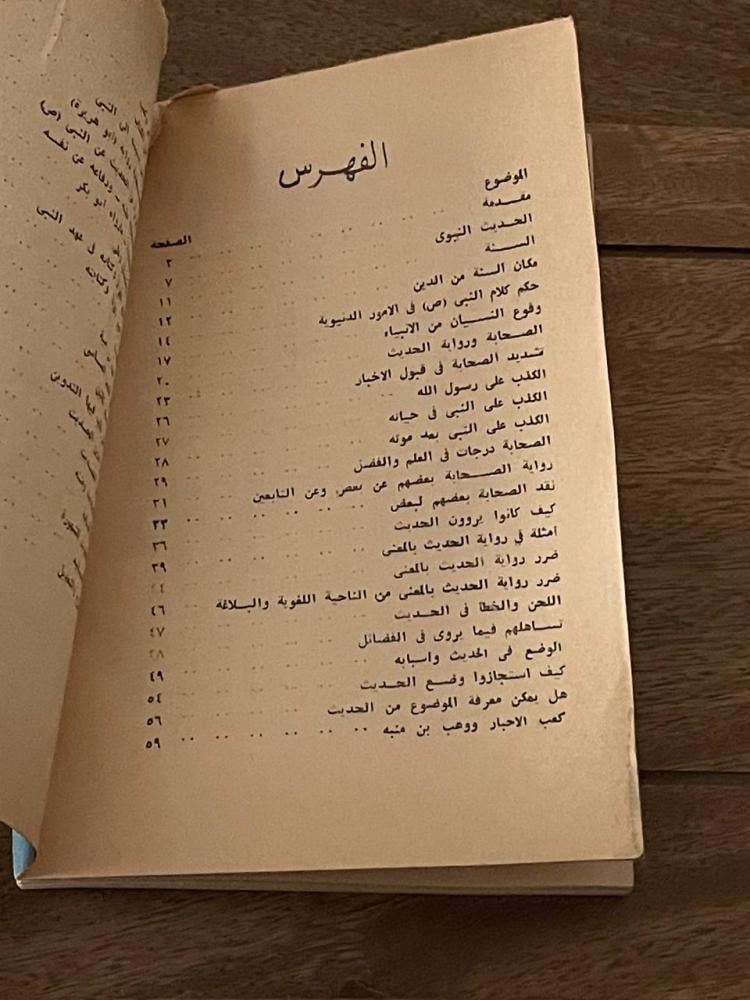 الفهرس
الموضوع الصفحة
مقدمة ٣
الحديث النبوى ٧
السنة ١١
مكان السنة من الدين ١٢
حكم كلام النبى (ص) فى الامور الدنيوية ١٤
وقوع النسيان من الانبياء ١٧
الصحابة ورواية الحديث ٢٠
تشديد الصحابة فى قبول الاخبار ٢٣
الكذب على رسول الله ٢٦
الكذب على النبى فى حياته ٢٧
الكذب على النبى بعد موته ٢٨
الصحابة درجات فى العلم والفضل ٢٩
رواية الصحابة بعضهم عن بعض، وعن التابعين ٣١
نقد الصحابة بعضهم لبعض ٣٣
كيف كانوا يروون الحديث ٣٦
امثلة فى رواية الحديث بالمعنى ٣٩
ضرر رواية الحديث بالمعنى ٤٤
ضرر رواية الحديث بالمعنى من الناحية اللغوية والبلاغة ٤٦
اللحن والخطا فى الحديث ٤٧
تساهلهم فيما يروى فى الفضائل ٤٨
الوضع فى الحديث واسبابه ٤٩
كيف استجازوا وضع الحديث ٥٤
هل يمكن معرفة الموضوع من الحديث ٥٦
كعب الاحبار ووهب بن منبه ٥٩